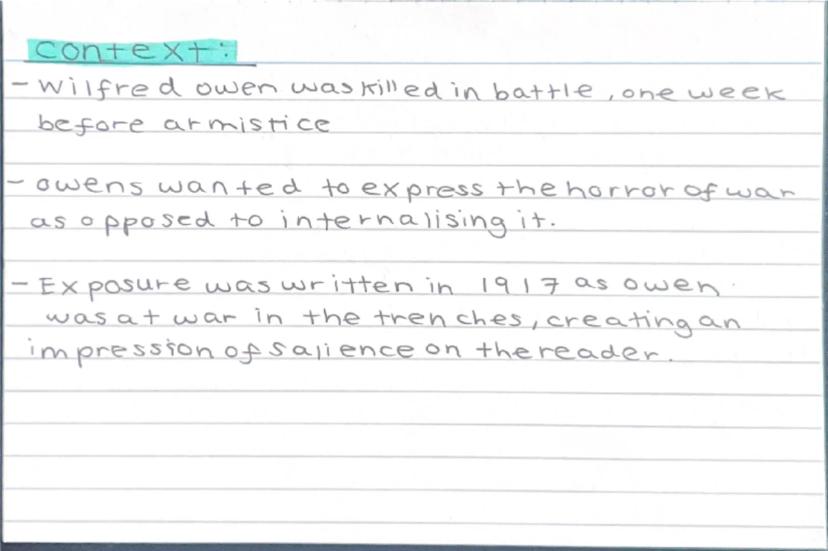 context:
- Wilfred owen was killed in battle, one week
before armistice
- owens wanted to express the horror of war
as opposed to internalising it.
- Exposure was written in 1917 as owen
was at war in the trenches, creating an
impression of salience on the reader.